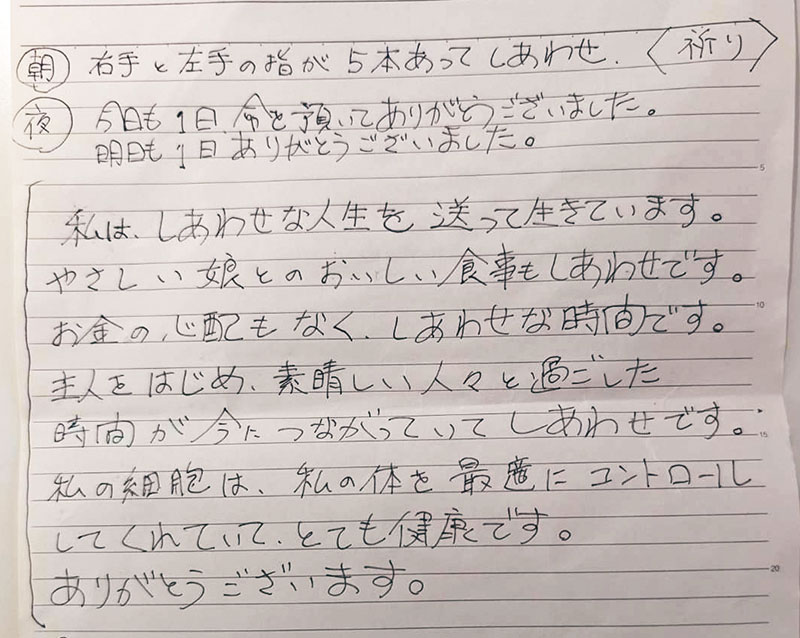 朝 右手と左手の指が5本あってしあわせ. 〈祈り〉
夜 今日も1日命を頂いてありがとうございました。
明日も1日ありがとうございました。
私は、しあわせな人生を送って生きています。
やさしい娘とのおいしい食事もしあわせです。
お金の心配もなく、しあわせな時間です。
主人をはじめ、素晴しい人々と過ごした
時間が今につながっていてしあわせです。
私の細胞は、私の体を最適にコントロール
してくれていて、とても健康です。
ありがとうございます。
5
10
15
20